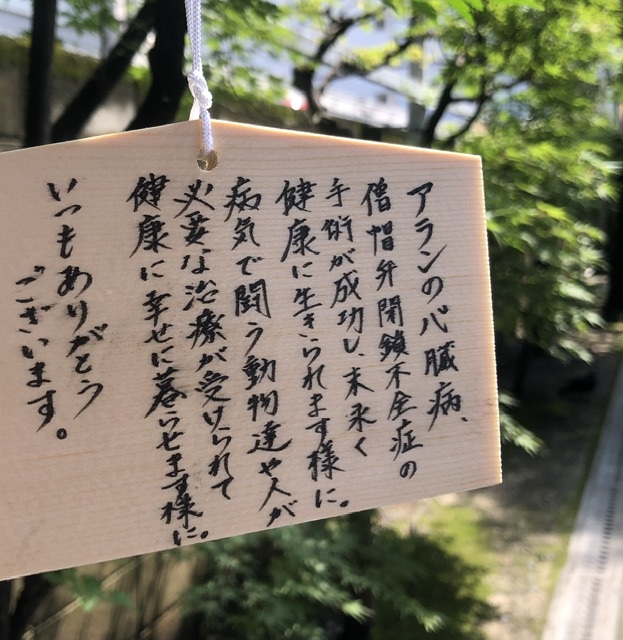 アランの心臓病、
僧帽弁閉鎖不全症の
手術が成功し、末永く
健康に生きられます様に。
病気で闘う動物達や人が
必要な治療が受けられて
健康に幸せに暮らせます様に。
いつもありがとう
ございます。